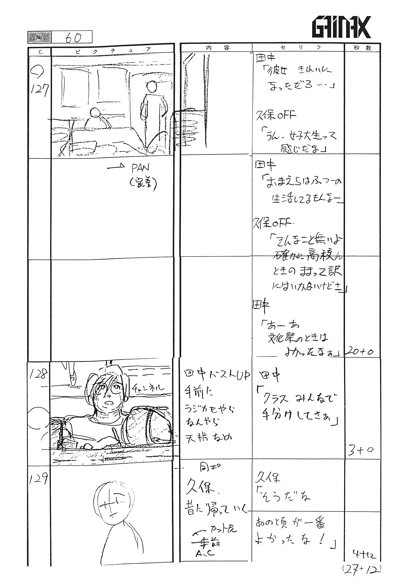 GAINAX
60
C
ピクチュア
内容
セリフ
秒数
127
田中
「彼女 きれいに
なっただろ…」
久保OFF
「うん、女子大生って
感じだよ」
→ PAN
田中
「おまえらはふつーの
生活してるもんなー
久保OFF
「そんなこと無いよ
確かに高校ん
ときのまって訳
にはいかないけどさ」
田中
「あーあ
文化祭のときは
よかったなぁ」
20+0
128
チャンネル
田中バストUP
手前に
ラジカセやら
なんやら
天格なめ
田中
「クラスみんなで
手分けしてさぁ」
3+0
129
同ポ
久保、
昔に帰っていく
カット尻
手前
A.C
久保
「そうだな
あの頃が一番
よかったな!」
4+12
(27+12)